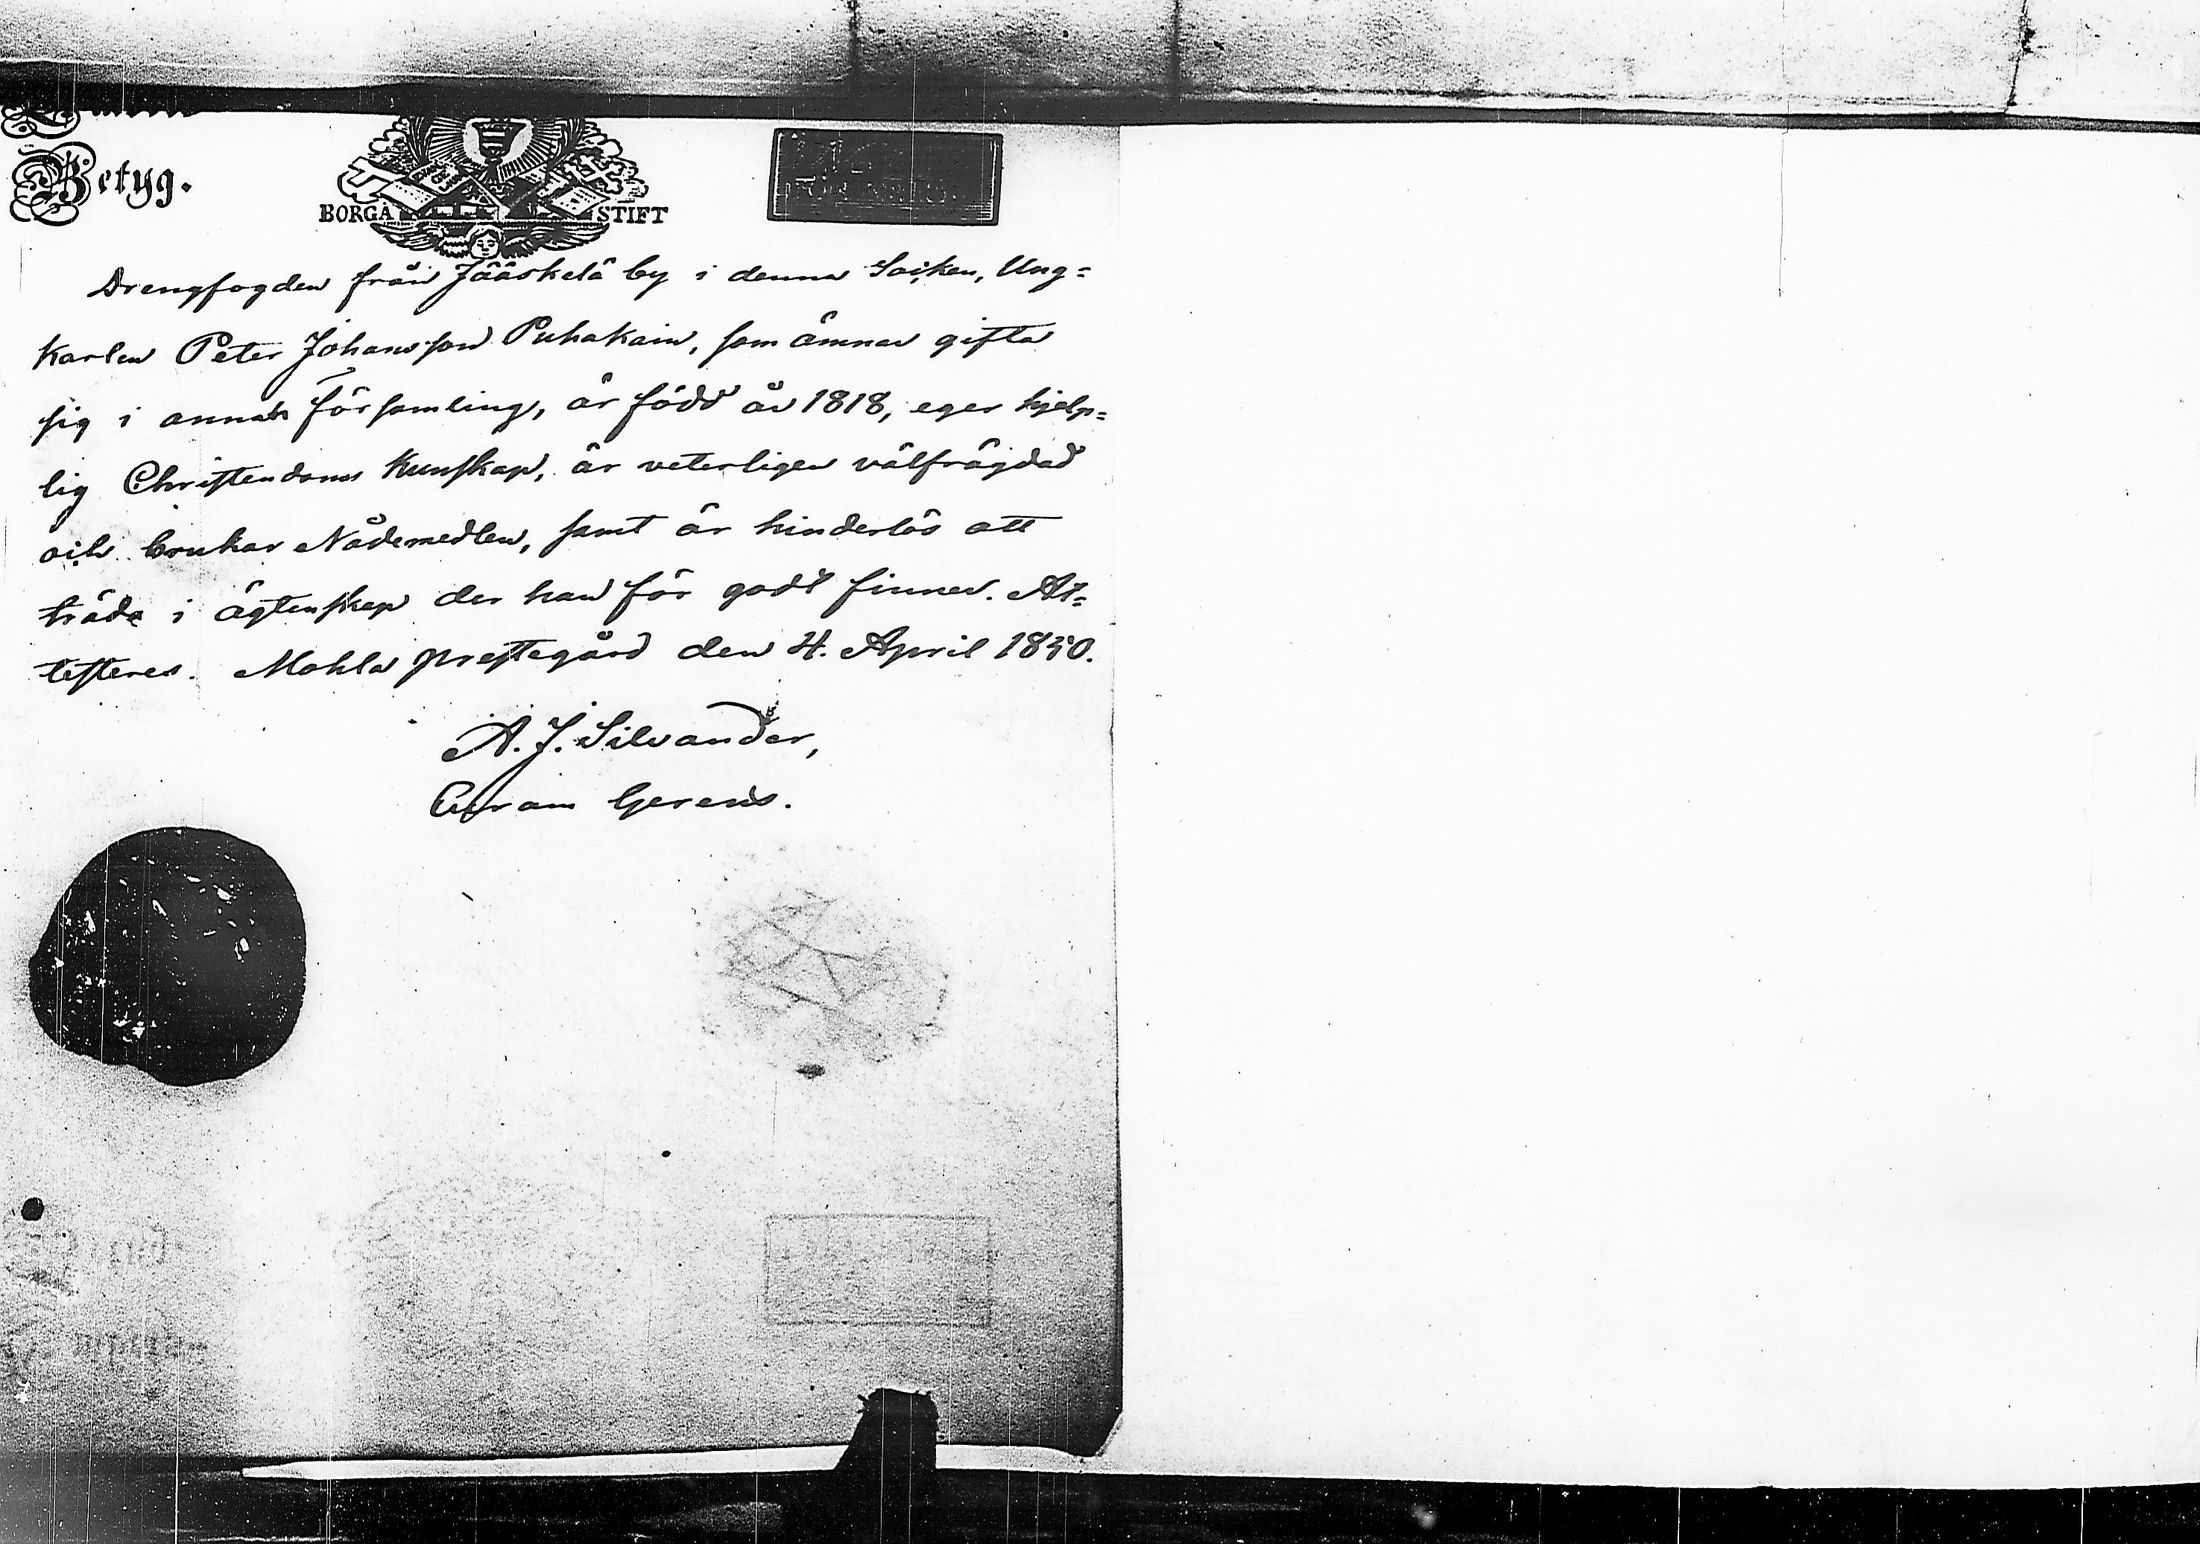 Betyg.
BORGÅ STIFT
Drengfogden från Jääskelä by i denna Socken, Ung=
Karlen Peter Johansson Puhakain, som ämnar gifta
sig i annan församling, är född år 1818, eger hjelp=
lig Christendoms Kunskap, är veterligen välfrägdad
och brukar Nådemedlen, samt är hinderlös att
träda i ägtenskap der han för godt finner. At=
testeres. Mohla prestegård den 4. April 1850.
A. J. Silvander,
Curam Gerens.